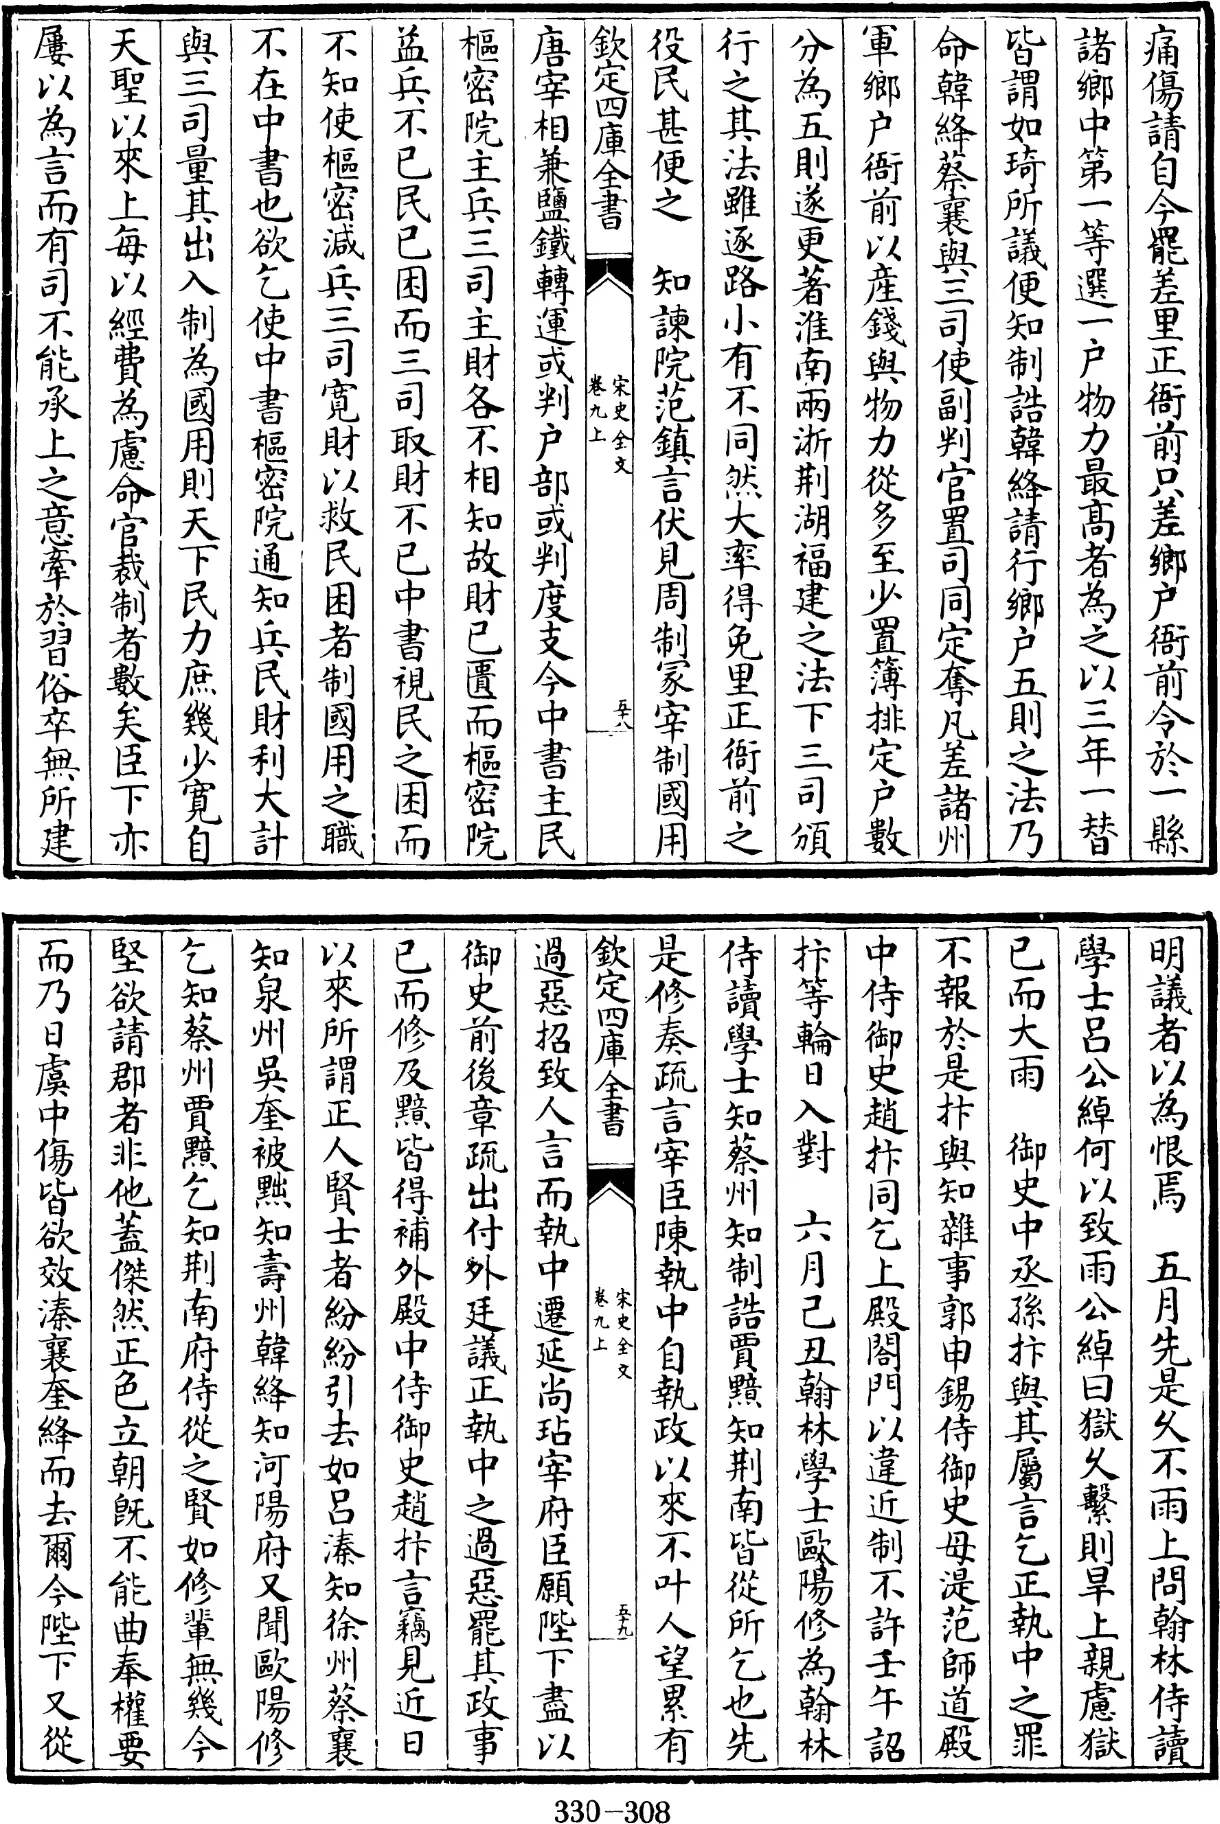 痛傷請自今罷差里正衙前只差鄉戶衙前令於一縣
諸鄉中第一等選一戶物力最髙者為之以三年一替
皆謂如琦所議便知制誥韓絳請行鄉戶五則之法乃
命韓絳蔡襄與三司使副判官置司同定奪凡差諸州
軍鄉戶衙前以産錢與物力從多至少置簿排定戶數
分為五則遂更著淮南兩浙荆湖福建之法下三司頒
行之其法雖逐路小有不同然大率得免里正衙前之
役民甚便之　知諫院范鎮言伏見周制冢宰制國用
欽定四庫全書
宋史全文
卷九上
五十八
唐宰相兼鹽鐵轉運或判戶部或判度支今中書主民
樞密院主兵三司主財各不相知故財已匱而樞密院
益兵不已民已困而三司取財不已中書視民之困而
不知使樞密減兵三司寛財以救民困者制國用之職
不在中書也欲乞使中書樞密院通知兵民財利大計
與三司量其出入制為國用則天下民力庶幾少寛自
天聖以來上每以經費為慮命官裁制者數矣臣下亦
屢以為言而有司不能承上之意牽於習俗卒無所建
明議者以為恨焉　五月先是久不雨上問翰林侍讀
學士呂公綽何以致雨公綽曰獄久繫則旱上親慮獄
已而大雨　御史中丞孫抃與其屬言乞正執中之罪
不報於是抃與知雜事郭申錫侍御史毋湜范師道殿
中侍御史趙抃同乞上殿閤門以違近制不許壬午詔
抃等輪日入對　六月己丑翰林學士歐陽修為翰林
侍讀學士知蔡州知制誥賈黯知荆南皆從所乞也先
是修奏疏言宰臣陳執中自執政以來不叶人望累有
欽定四庫全書
宋史全文
卷九上
五十九
過惡招致人言而執中遷延尚玷宰府臣願陛下盡以
御史前後章疏出付外廷議正執中之過惡罷其政事
已而修及黯皆得補外殿中侍御史趙抃言竊見近日
以來所謂正人賢士者紛紛引去如呂溱知徐州蔡襄
知泉州吳奎被黜知壽州韓絳知河陽府又聞歐陽修
乞知蔡州賈黯乞知荆南府侍從之賢如修輩無幾今
堅欲請郡者非他蓋傑然正色立朝旣不能曲奉權要
而乃日虞中傷皆欲效溱襄奎絳而去爾今陛下又從
330-308